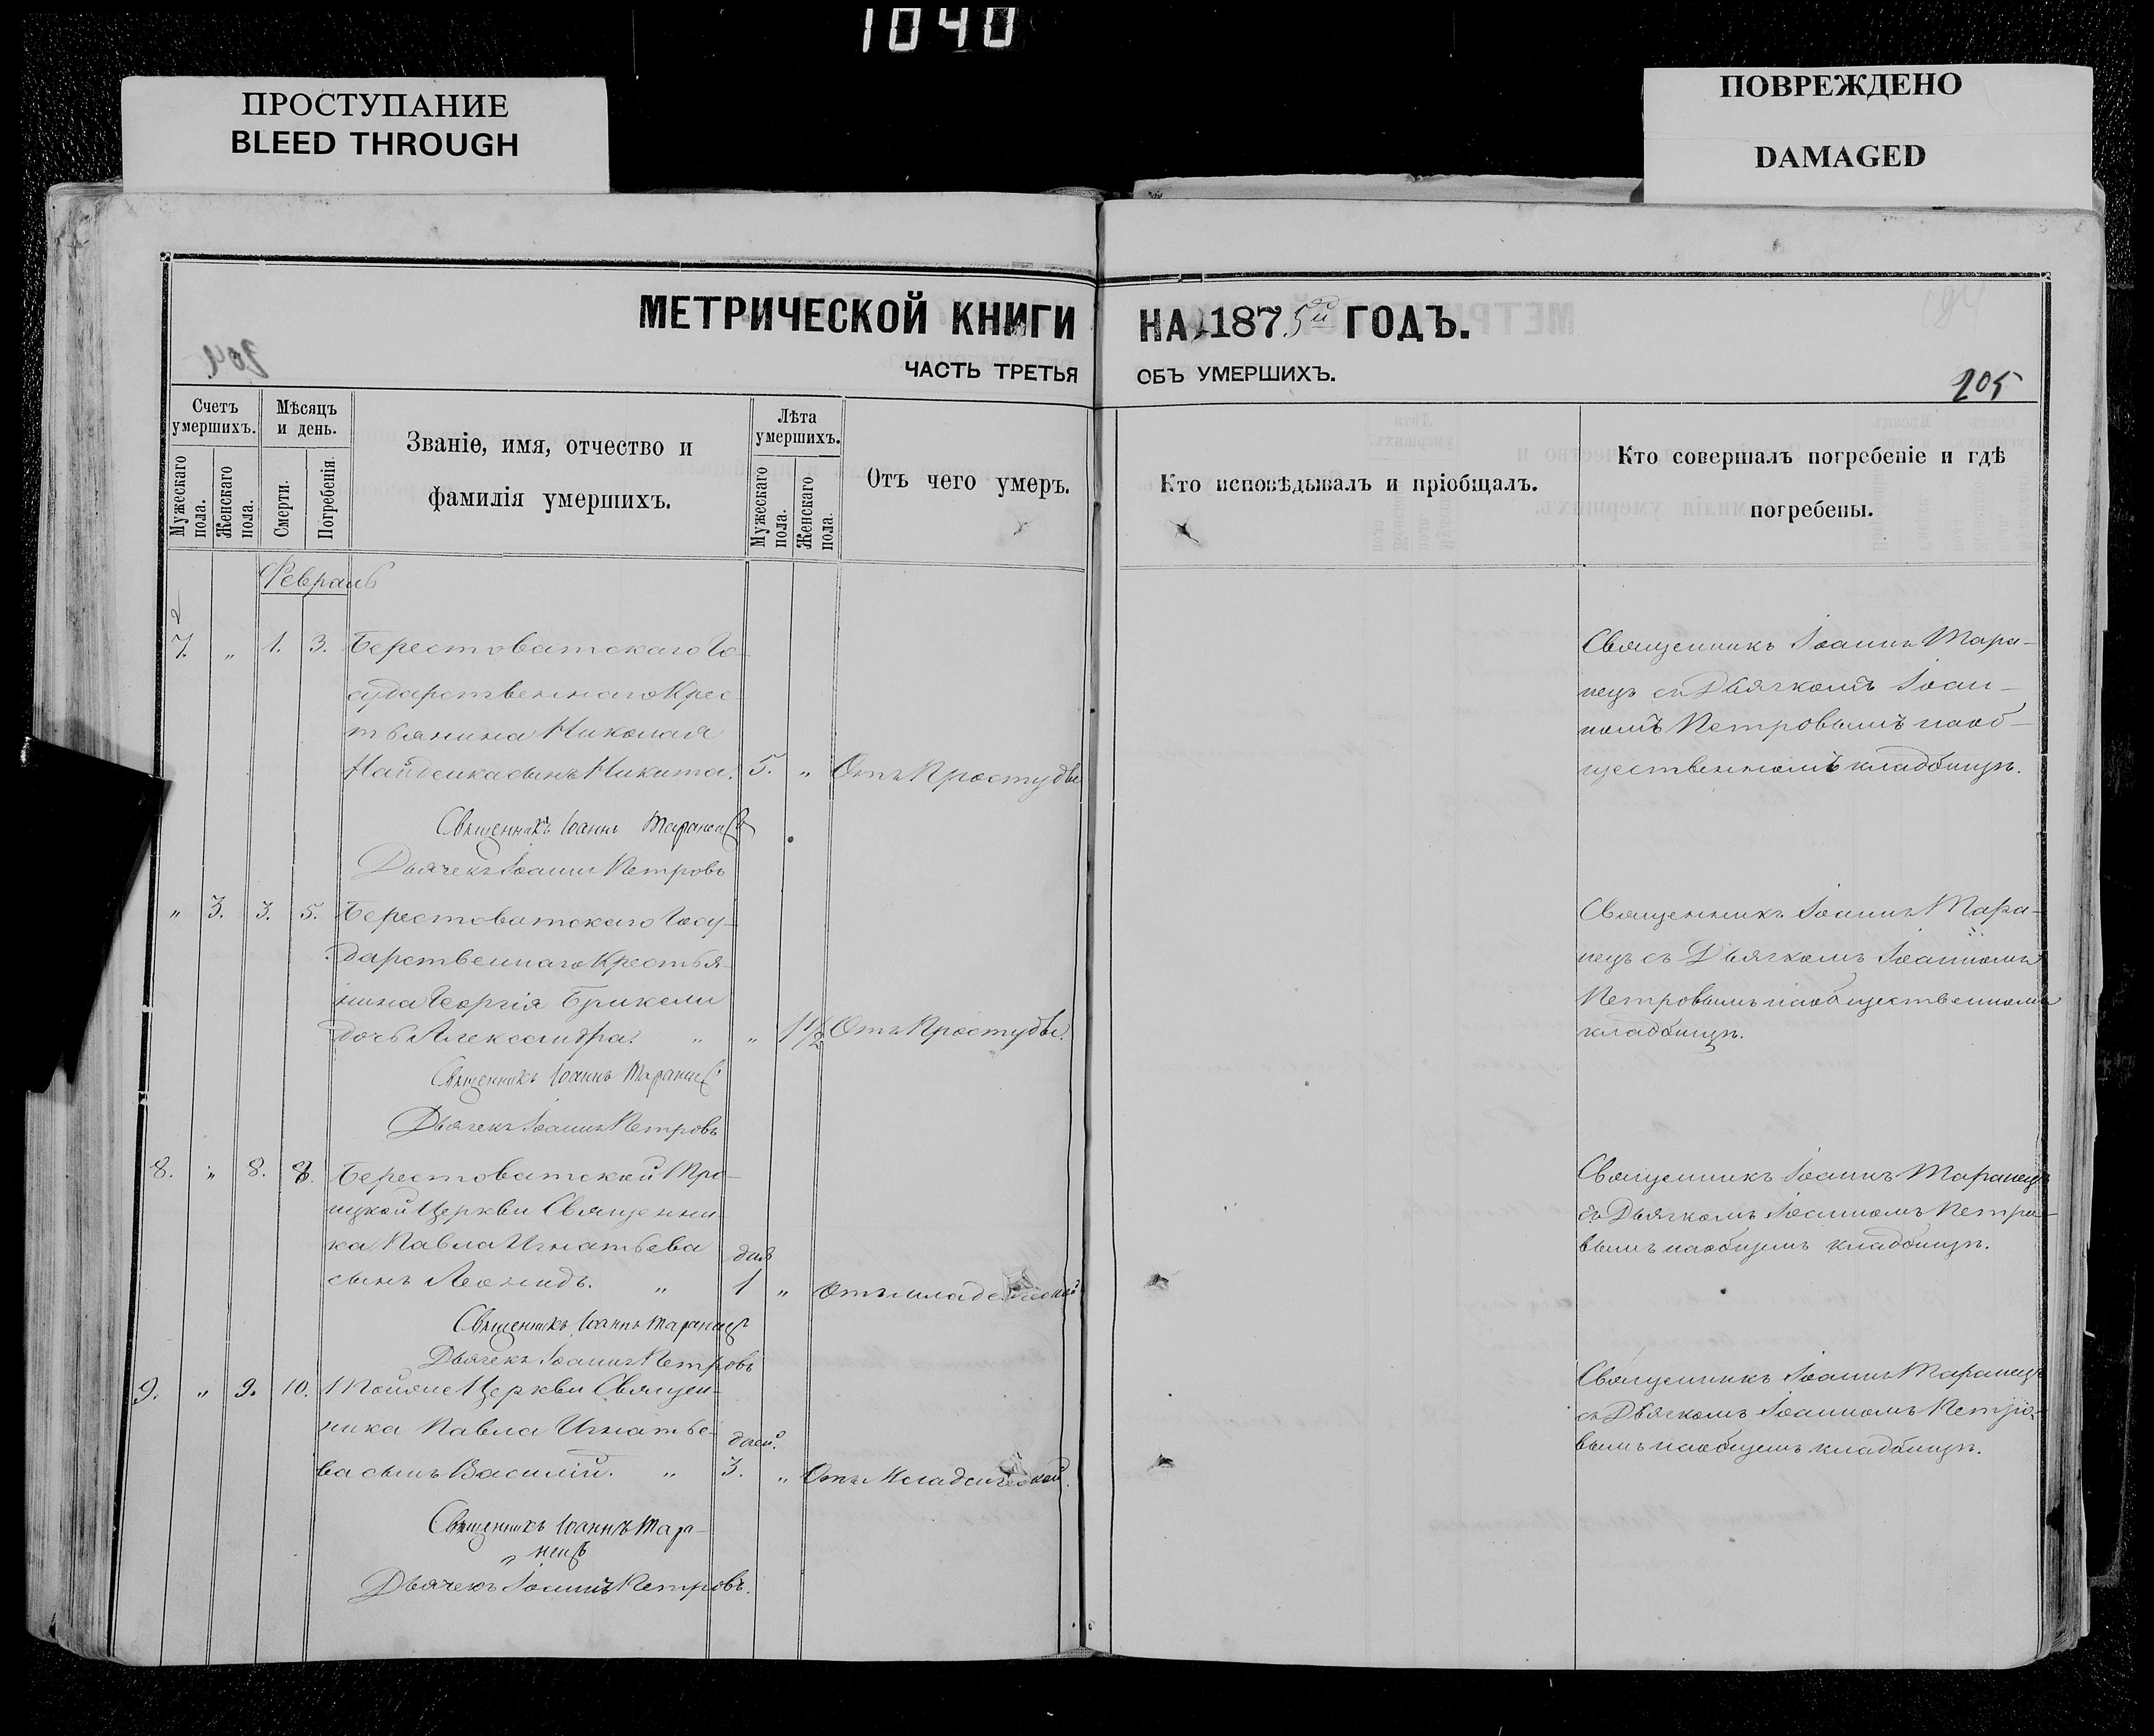 1040
ПРОСТУПАНИЕ
BLEED THROUGH
ПОВРЕЖДЕНО
DAMAGED
МЕТРИЧЕСКОЙ КНИГИ
НА 1875 ГОДЪ.
ЧАСТЬ ТРЕТЬЯ
ОБЪ УМЕРШИХЪ.
205
Счетъ умершихъ.
Мужескаго пола.
Женскаго пола.
Мѣсяцъ и день.
Смерти.
Погребенія.
Званіе, имя, отчество и
фамилія умершихъ.
Лѣта умершихъ.
Мужескаго пола.
Женскаго пола.
Отъ чего умеръ.
Кто исповѣдывалъ и пріобщалъ.
Кто совершалъ погребеніе и гдѣ
погребены.
Февраль
7. „ 1. 3. Берестоватскаго Го-
сударственнаго Крес
тьянина Николая
Найденка сынъ Никита. 5. „ Отъ Простуды
Священникъ Іоаннъ Таранецъ
Дьячекъ Іоаннъ Петровъ
Священникъ Іоаннъ Тара-
нецъ съ Дьячкомъ Іоан-
номъ Петровымъ на об-
щественномъ кладбищѣ.
„ 3. 3. 5. Берестоватскаго Госу-
дарственнаго Крестья-
нина Георгія
дочь Александра. „ „ 1 1/2 Отъ Простуды.
Священникъ Іоаннъ Таранецъ
Дьячекъ Іоаннъ Петровъ
Священникъ Іоаннъ Тара-
нецъ съ Дьячкомъ Іоанномъ
Петровымъ на общественномъ
кладбищѣ.
8. „ 8. 8. Берестоватской Тро-
ицкой Церкви Священни-
ка Павла Игнатьева
сынъ Леонидъ. „ 1 „ Отъ младенческой
Священникъ Іоаннъ Таранецъ
Дьячекъ Іоаннъ Петровъ
Священникъ Іоаннъ Таранецъ
съ Дьячкомъ Іоанномъ Петро-
вымъ на общемъ кладбищѣ.
9. „ 9. 10. Тойяже Церкви Священ-
ника Павла Игнатье-
дней.
ва сынъ Василій. „ 3. „ Отъ Младенческой.
Священникъ Іоаннъ Тара-
нецъ
Дьячекъ Іоаннъ Петровъ.
Священникъ Іоаннъ Таранецъ
съ Дьячкомъ Іоанномъ Петро-
вымъ на общемъ кладбищѣ.